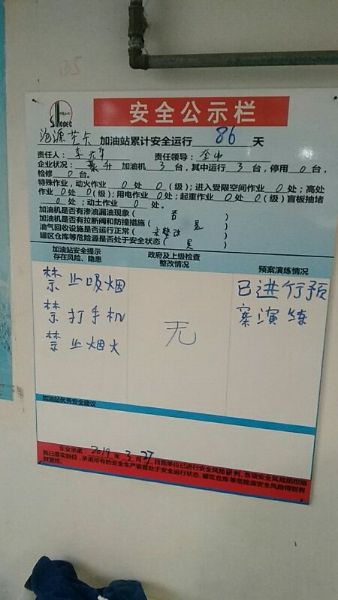 安全公示栏
加油站累计安全运行 86 天
责任人： 责任领导：
企业状况： 加油机 3 台，其中运行 3 台，停用 0 台，
检修 0 台。
特殊作业，动火作业 0 处 0（级）；进入受限空间作业 0 处；高处
作业 0 处 0（级）用电作业 0 处；起重作业 0 处 0（级）盲板抽堵
0 处；动土作业 0 处。
加油机是否有渗油漏油现象（ 否 ）
加油机是否有拉断阀和防撞措施（ 是 ）
油气回收设施是否运行正常（ ）
罐区仓库等危险源是否处于安全状态（ 是 ）
加油站安全提示
存在风险、隐患
政府及上级检查
整改情况
预案演练情况
禁止吸烟
禁打手机
禁止烟火
无
已进行预
案演练
加油站优秀安全建议
2019 年 3 月 27